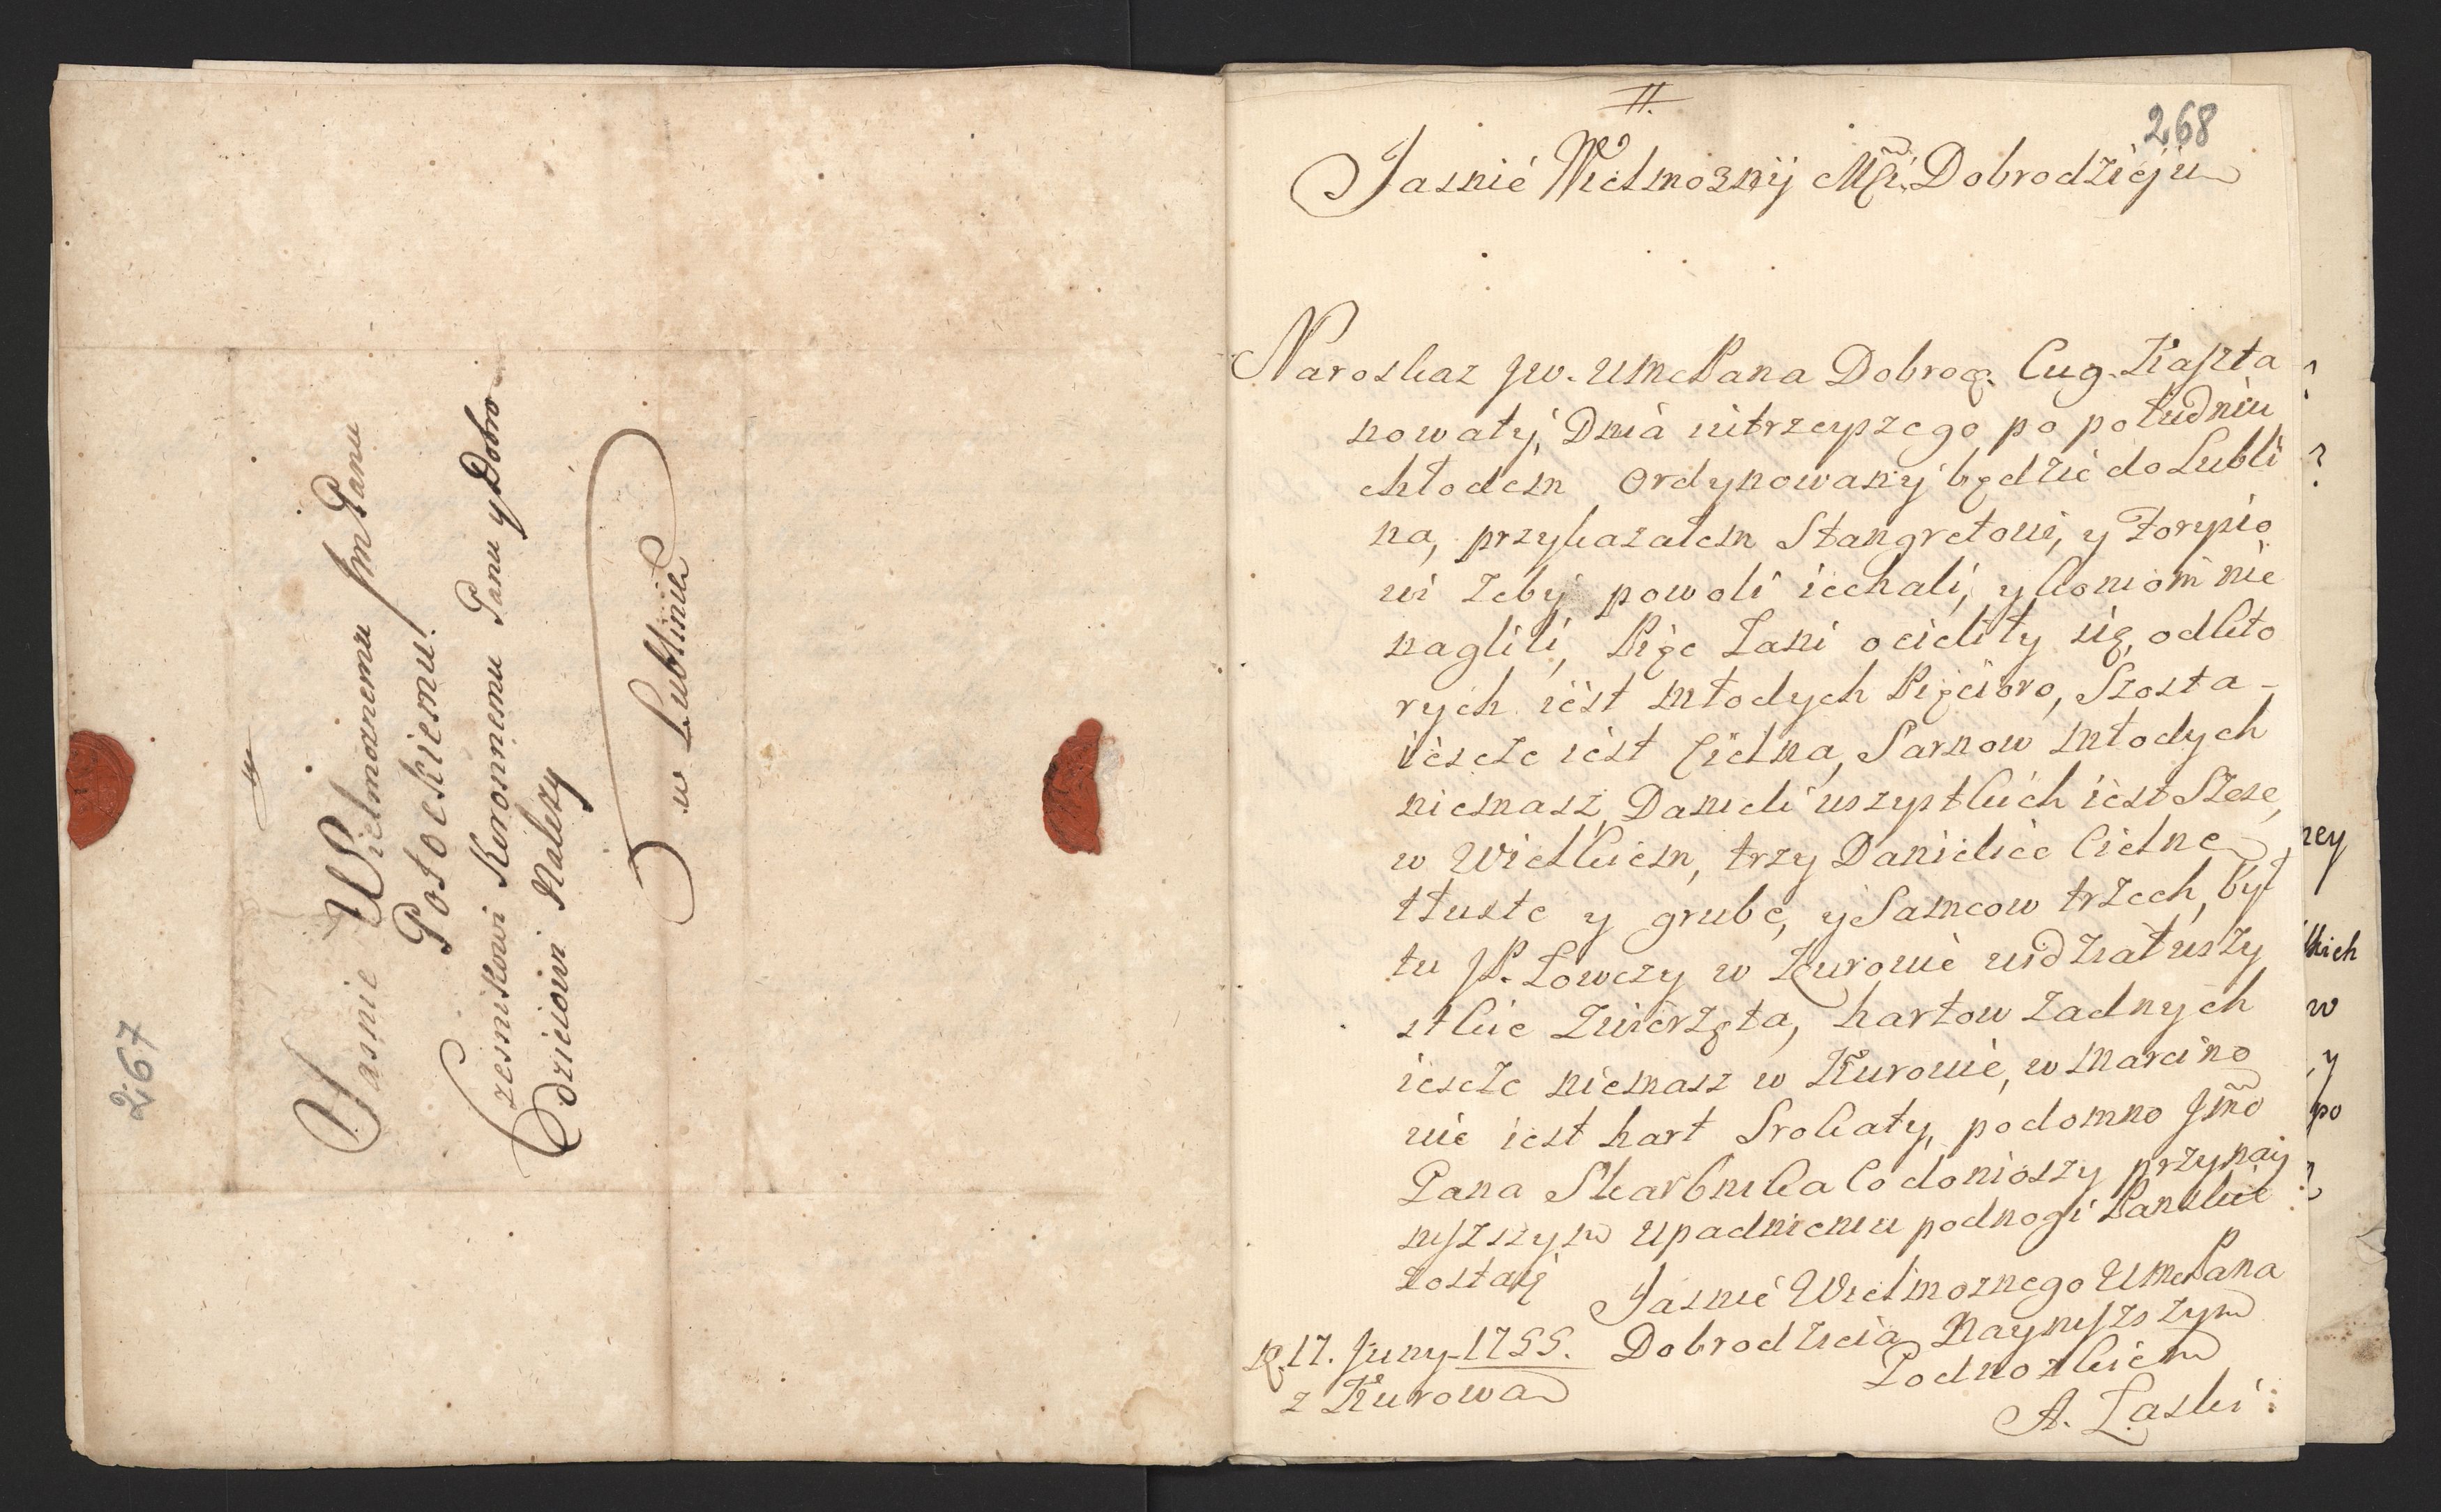 267
Jasnie Wielmoznemu Jm Panu
Potockiemu
Czesnikowi Koronnemu Panu y Dobro
dzieiowi Nalezy
w Lublinie
268
II.
Jasnie Wielmozny Mści Dobrodzieju
Na roskaz Jw. UmcPana Dobroɖ. Cug Kaszta
nowaty, Dnia iutrzeyszego po południu
chłodem Ordynowany będzie do Lubli
na, przykazałem Stangretowi, y Forysio
wi zeby powoli iechali, y koniom nie
naglili, Pięc Łani ocieliły się, od kto
rych iest młodych Pięcioro, Szosta
iescze iest Cielna, Sarnow młodych
niemasz, Danieli wszystkich iest Szesc,
w Wielkiem, trzy Danielice Cielne
tłuste y grube, y Samcow trzech, był
tu JP. Łowczy w Kurowie widział wszy
stkie Zwierzęta, hartow zadnych
iescze niemasz w Kurowie, w Marcino
wie iest hart Srokaty, podomno Jmo
Pana Skarbnika Co doniosszy przy nay
niszszym upadnieniu pod nogi Panskie
zostaię
Jasnie Wielmoznego UmcPana
Dobrodzieia Nayniszszym
Podnozkiem
A. Łaski
D. 17. Juny 1755.
z Kurowa
ney
kich
w
y
po